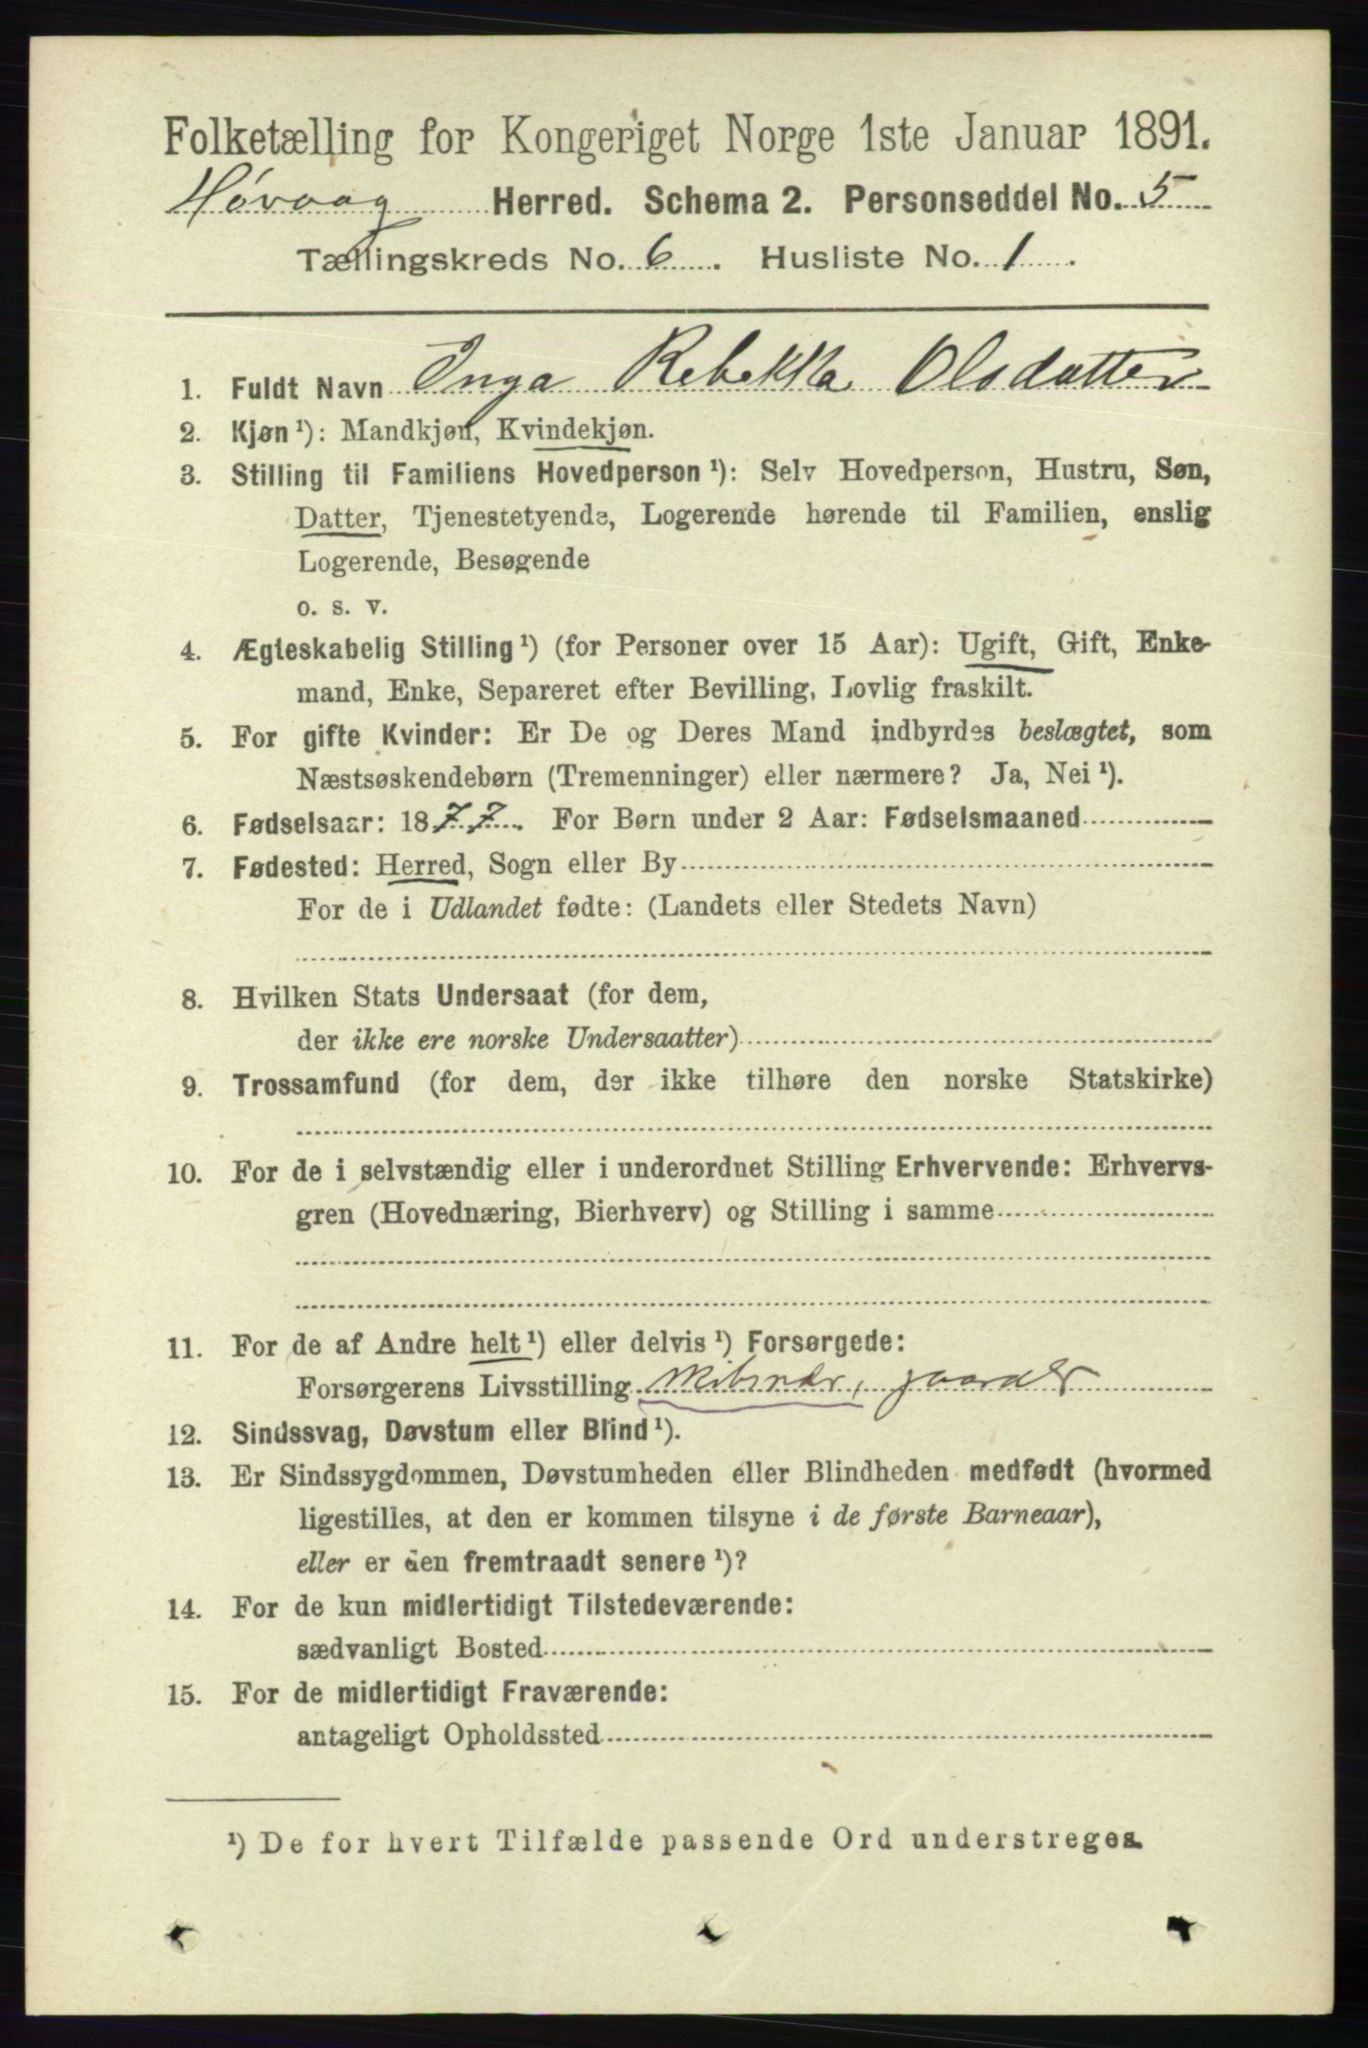 Folketælling for Kongeriget Norge 1ste Januar 1891.
Høvaag Herred. Schema 2. Personseddel No. 5
Tællingskreds No. 6. Husliste No. 1.
1. Fuldt Navn Inga Rebekka Olsdatter
2. Kjøn ¹): Mandkjøn, Kvindekjøn.
3. Stilling til Familiens Hovedperson ¹): Selv Hovedperson, Hustru, Søn,
Datter, Tjenestetyende, Logerende hørende til Familien, enslig
Logerende, Besøgende
o. s. v.
4. Ægteskabelig Stilling ¹) (for Personer over 15 Aar): Ugift, Gift, Enke-
mand, Enke, Separeret efter Bevilling, Lovlig fraskilt.
5. For gifte Kvinder: Er De og Deres Mand indbyrdes beslægtet, som
Næstsøskendebørn (Tremenninger) eller nærmere? Ja, Nei ¹).
6. Fødselsaar: 1877. For Børn under 2 Aar: Fødselsmaaned
7. Fødested: Herred, Sogn eller By
For de i Udlandet fødte: (Landets eller Stedets Navn)
8. Hvilken Stats Undersaat (for dem,
der ikke ere norske Undersaatter)
9. Trossamfund (for dem, der ikke tilhøre den norske Statskirke)
10. For de i selvstændig eller i underordnet Stilling Erhvervende: Erhvervs-
gren (Hovednæring, Bierhverv) og Stilling i samme
11. For de af Andre helt ¹) eller delvis ¹) Forsørgede:
Forsørgerens Livsstilling
12. Sindssvag, Døvstum eller Blind ¹).
13. Er Sindssygdommen, Døvstumheden eller Blindheden medfødt (hvormed
ligestilles, at den er kommen tilsyne i de første Barneaar),
eller er den fremtraadt senere ¹)?
14. For de kun midlertidigt Tilstedeværende:
sædvanligt Bosted
15. For de midlertidigt Fraværende:
antageligt Opholdssted
¹) De for hvert Tilfælde passende Ord understreges.